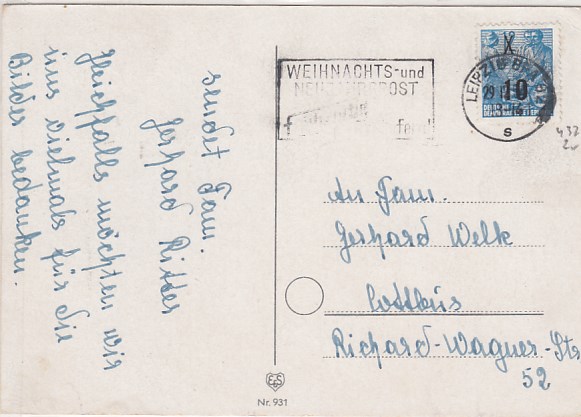 sendet Fam.
Gerhard Ritter
Gleichfalls möchten wir
uns vielmals für die
Bilder bedanken.
WEIHNACHTS- und
NEUJAHRSPOST
LEIPZIG
10
s
437
An Fam.
Gerhard Welk
Cottbus
Richard-Wagner-Str
52
EGS
Nr. 931